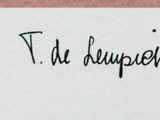 T. de Lempick